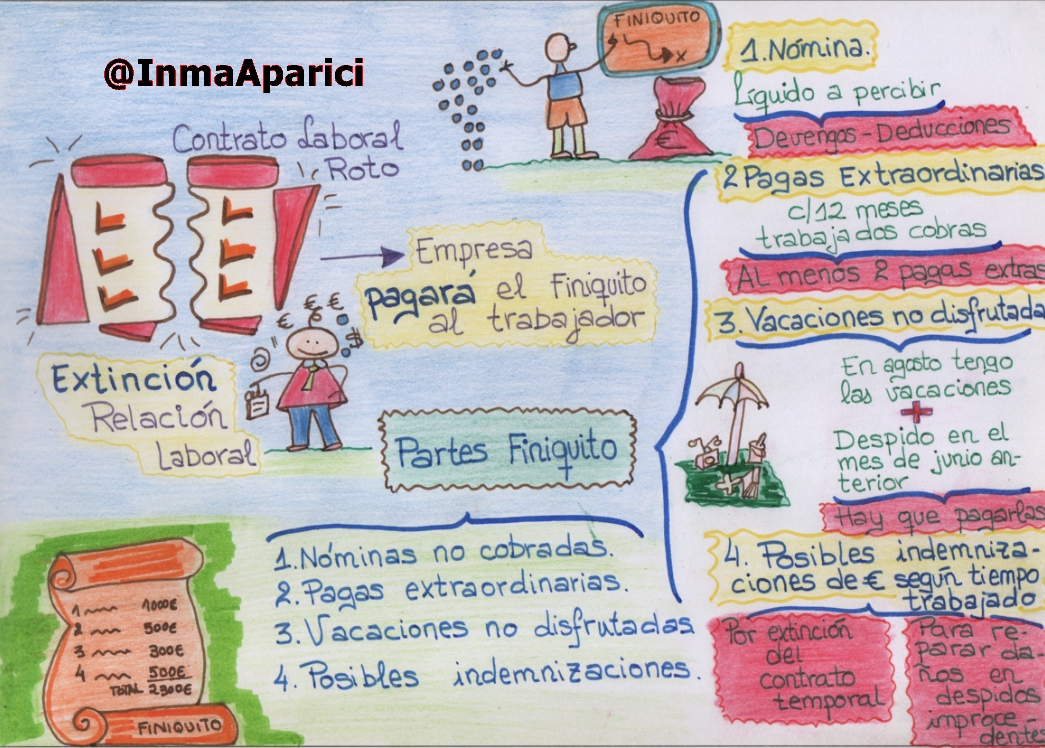 @InmaAparici
Contrato Laboral
Roto
Empresa
pagará el Finiquito
al trabajador
€ € €
$
Extinción
Relación
Laboral
Partes Finiquito
1. Nóminas no cobradas.
2. Pagas extraordinarias.
3. Vacaciones no disfrutadas
4. Posibles indemnizaciones.
1 1000€
2 500€
3 300€
4 500€
TOTAL 2300€
FINIQUITO
FINIQUITO
x
€
1. Nómina.
Líquido a percibir
Devengos - Deducciones
2 Pagas Extraordinarias
c/12 meses
trabajados cobras
Al menos 2 pagas extras
3. Vacaciones no disfrutada
En agosto tengo
las vacaciones
+
Despido en el
mes de junio an-
terior
Hay que pagarlas
4. Posibles indemniza-
ciones de € según tiempo
trabajado
Por extinción
del
contrato
temporal
Para re-
parar da-
ños en
despidos
improce-
dentes